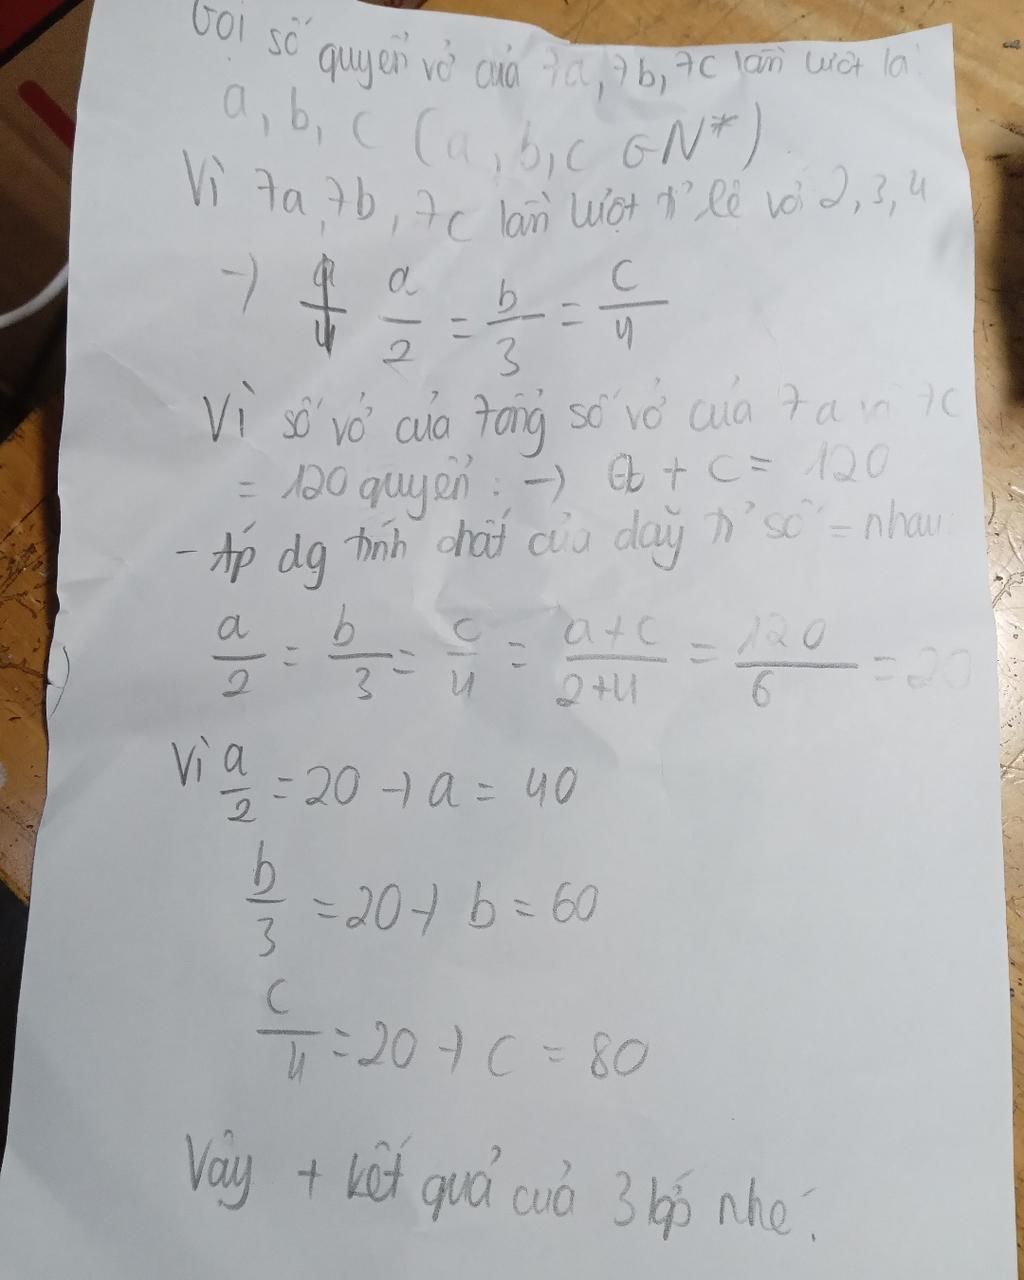 Gọi số quyển vở của 7a, 7b, 7c lần lượt là
a, b, c (a, b, c ∈ N*)
Vì 7a, 7b, 7c lần lượt tỉ lệ với 2, 3, 4
→) a/2 = b/3 = c/4
Vì số vở của tổng số vở của 7a và 7c
= 120 quyển : →) a + c = 120
- Áp dg tính chất của dãy tỉ số = nhau
a/2 = b/3 = c/4 = a+c/2+4 = 120/6 = 20
Vì a/2 = 20 → a = 40
b/3 = 20 → b = 60
c/4 = 20 → c = 80
Vậy + kết quả của 3 nhé.